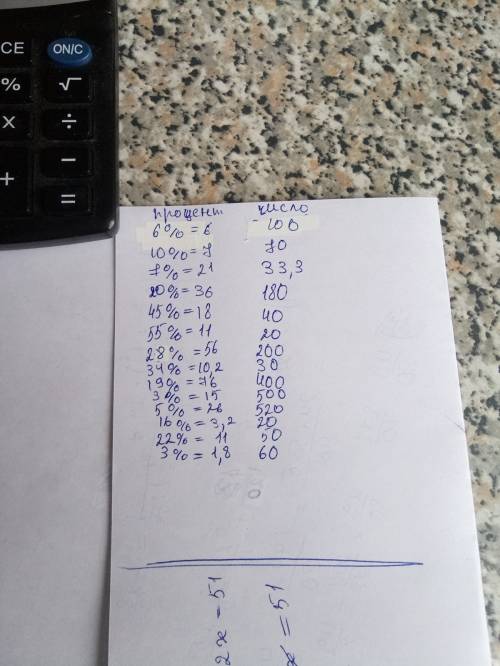 CE ON/C
% √
X ÷
+ −
=
процент число
6% = 6 100
10% = 7 70
7% = 21 33,3
20% = 36 180
45% = 18 40
55% = 11 20
28% = 56 200
34% = 10,2 30
19% = 76 400
3% = 15 500
5% = 26 520
16% = 3,2 20
22% = 11 50
3% = 1,8 60
2x - 51
x = 51